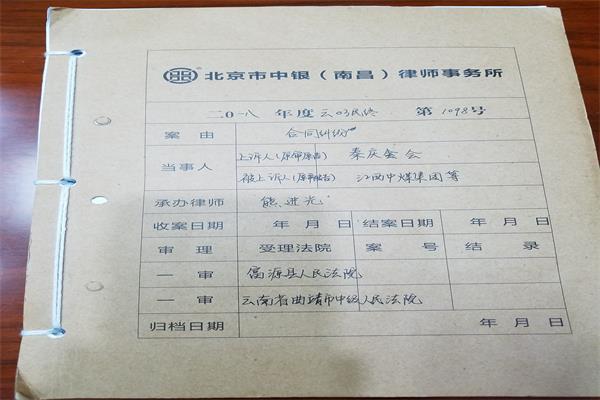 北京市中银（南昌）律师事务所
二〇一八 年度云03民终 第1098号
案由 合同纠纷
当事人 上诉人(原审原告) 秦庆金会
被上诉人(原审被告) 江西中煤集团等
承办律师 熊进光
收案日期 年 月 日 结案日期 年 月 日
审理 受理法院 案号 结录
一审 富源县人民法院
一审 云南省曲靖市中级人民法院
归档日期 年 月 日